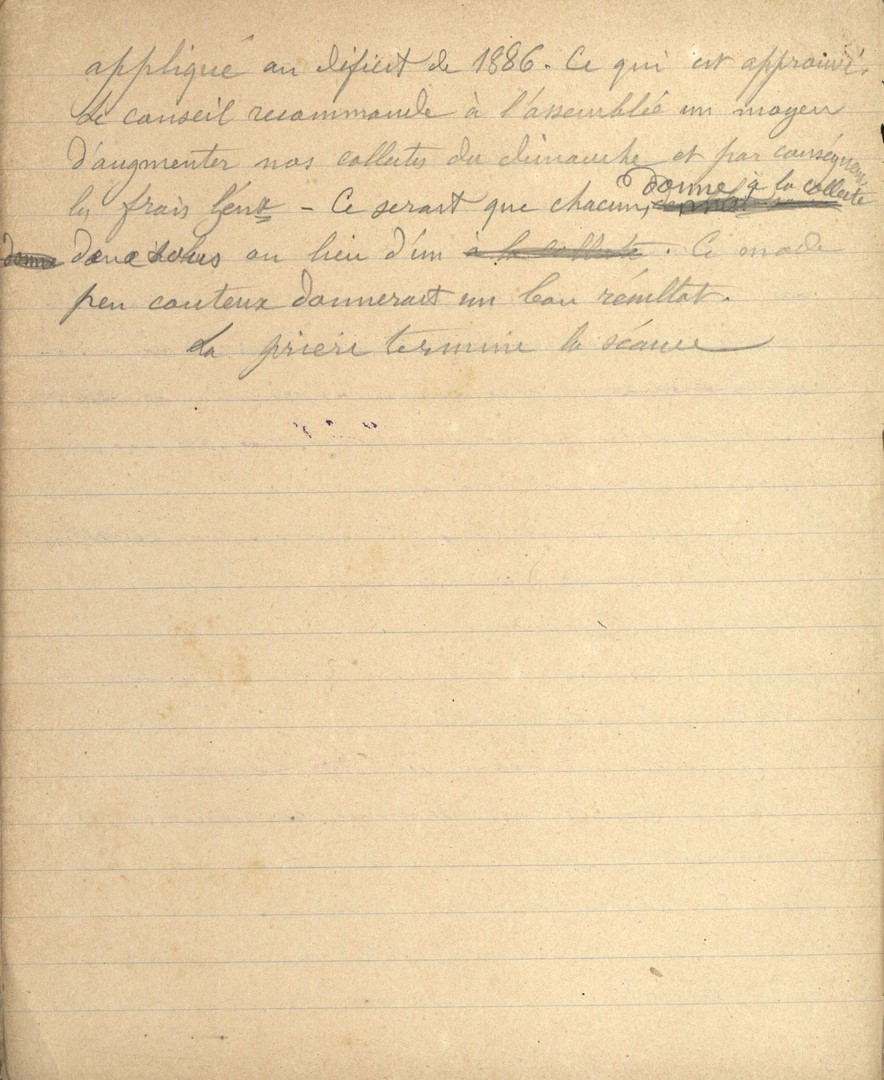 appliqué au déficit de 1886. Ce qui est approuvé.
Le conseil recommande à l'assemblée un moyen
d'augmenter nos collectes du dimanche et par conséquent
les frais Génx - Ce serait que chacun, donne à la collecte
deux sous au lieu d'un à la collecte. Ce mode
peu couteux donnerait un bon résultat.
La prière termine la séance